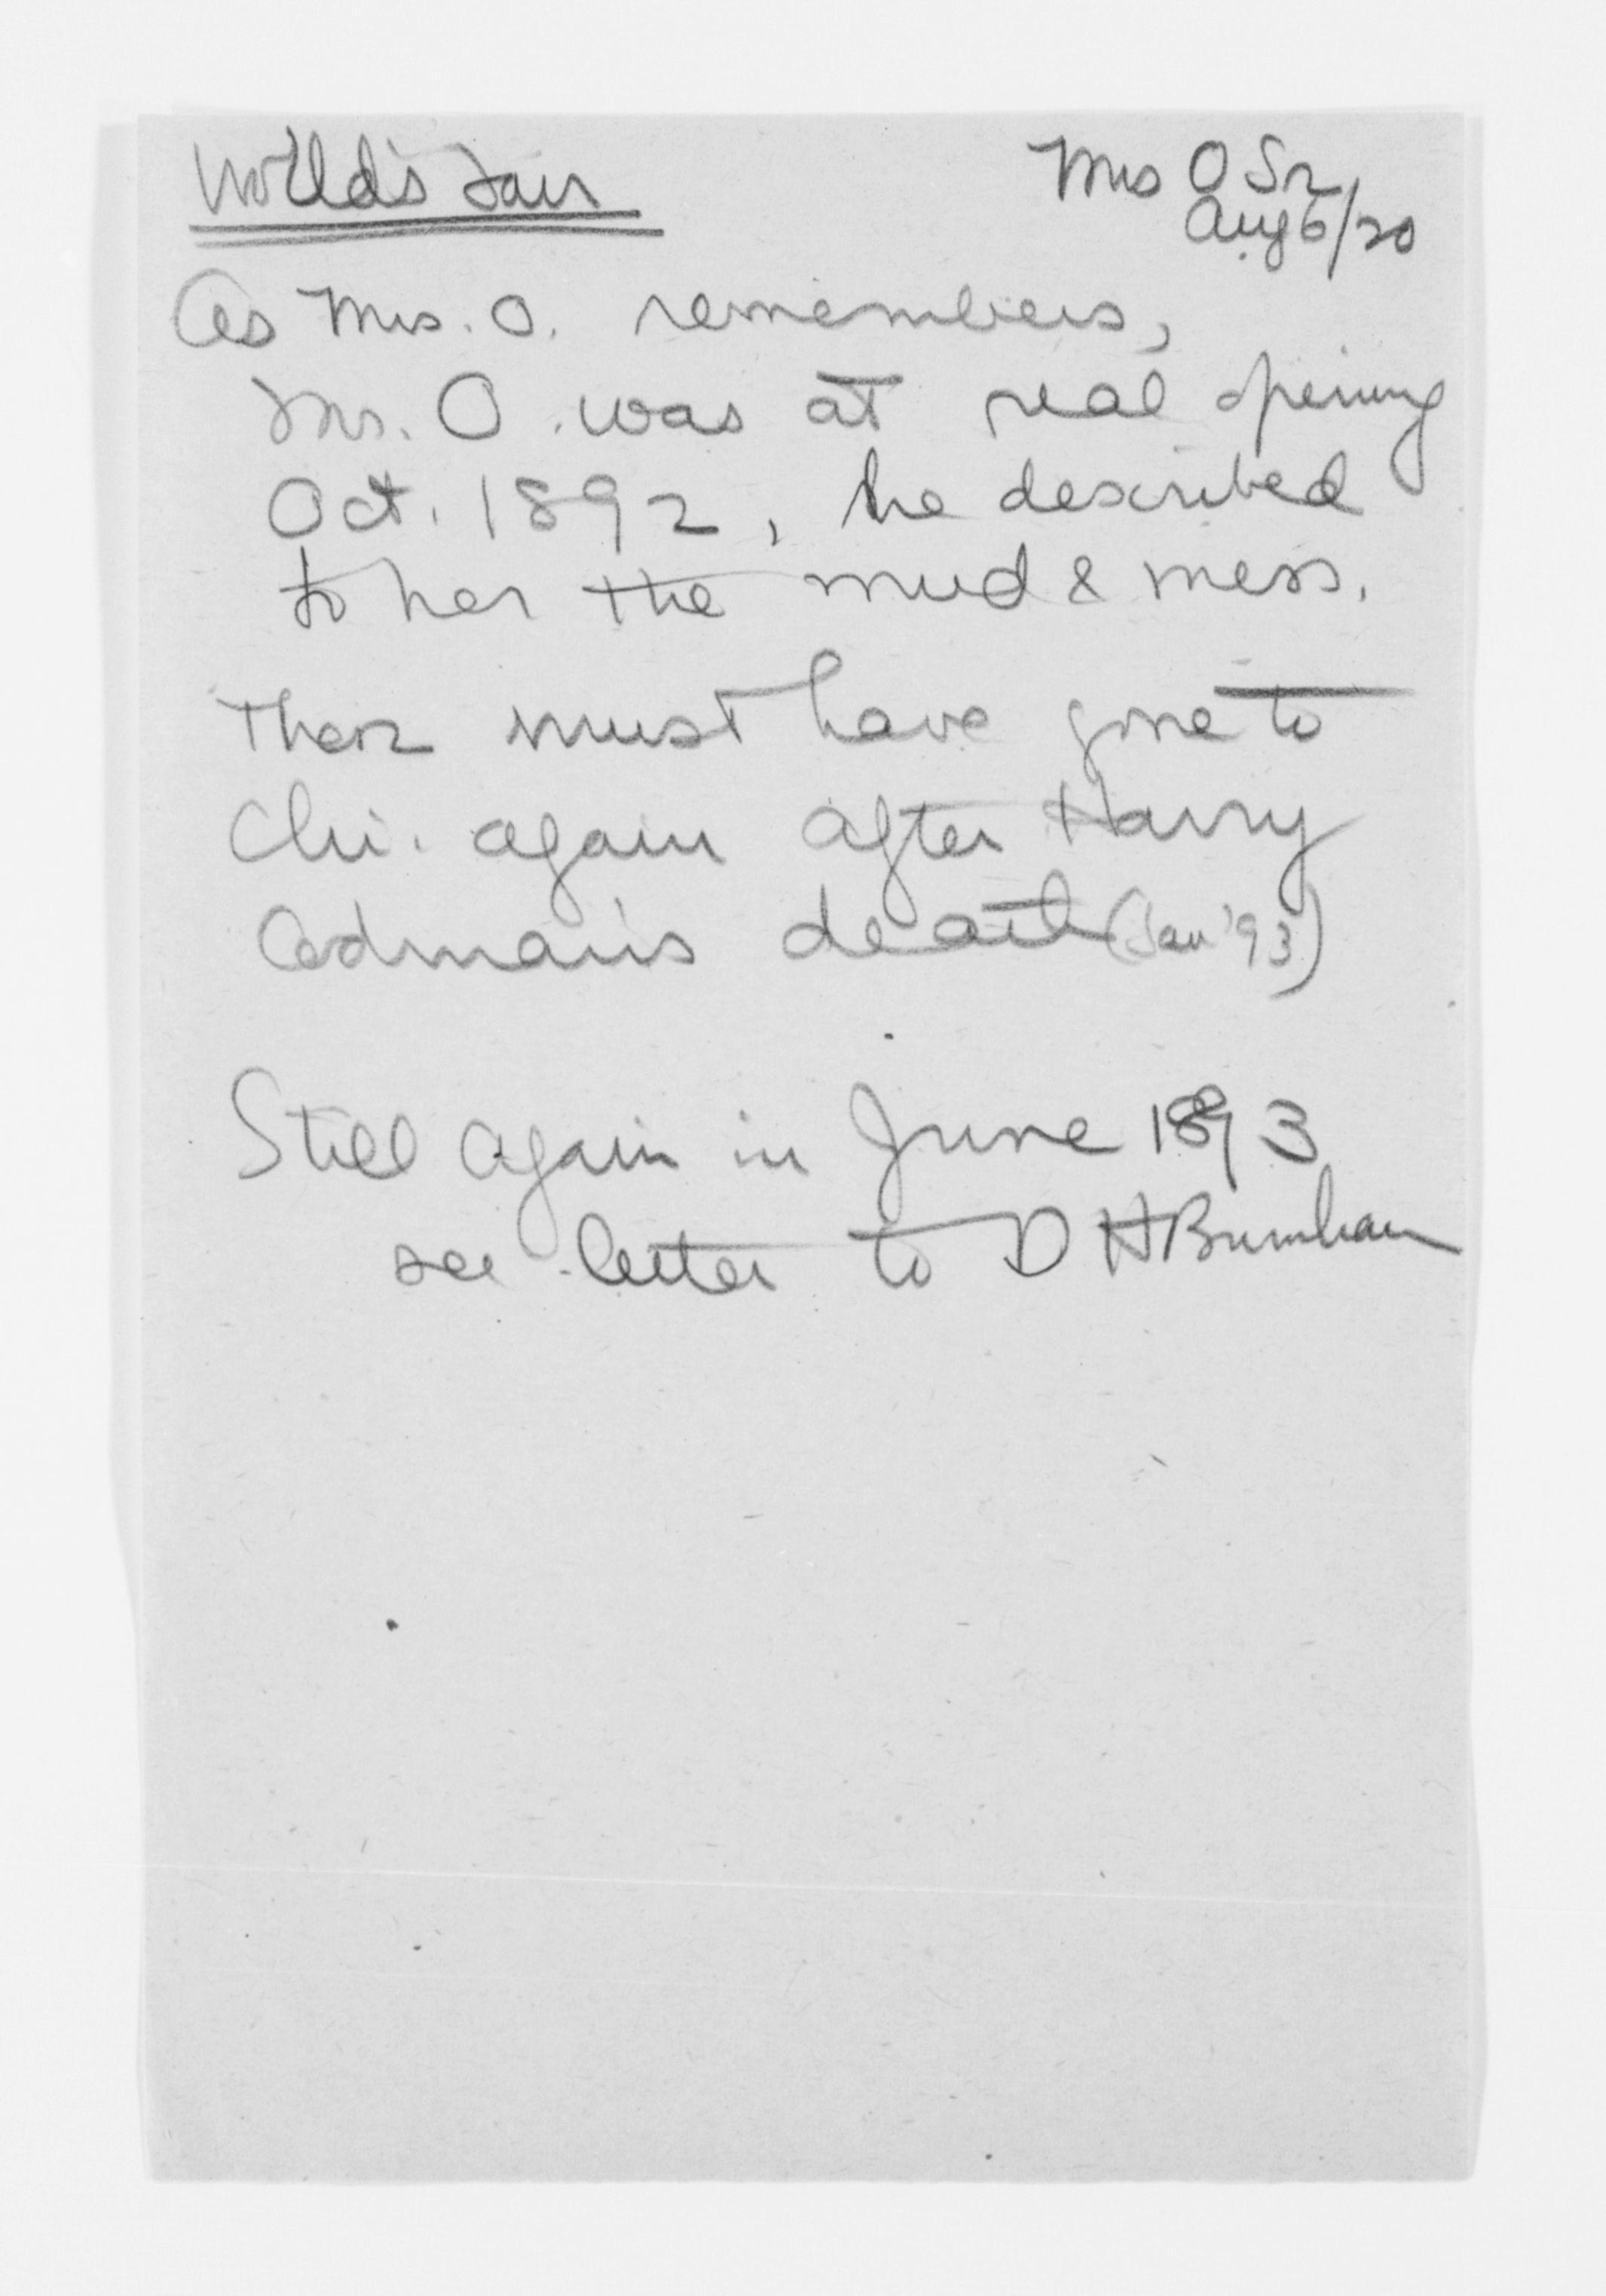 World's Fair
Mrs O Sr
Aug 6/20
As Mrs. O. remembers,
Mr. O. was at real opening
Oct. 1892, he described
to her the mud & mess.
Then must have gone to
Chi. again after Harry
Codman's death (Jan '93)
Still again in June 1893
see letter to D H Burnham